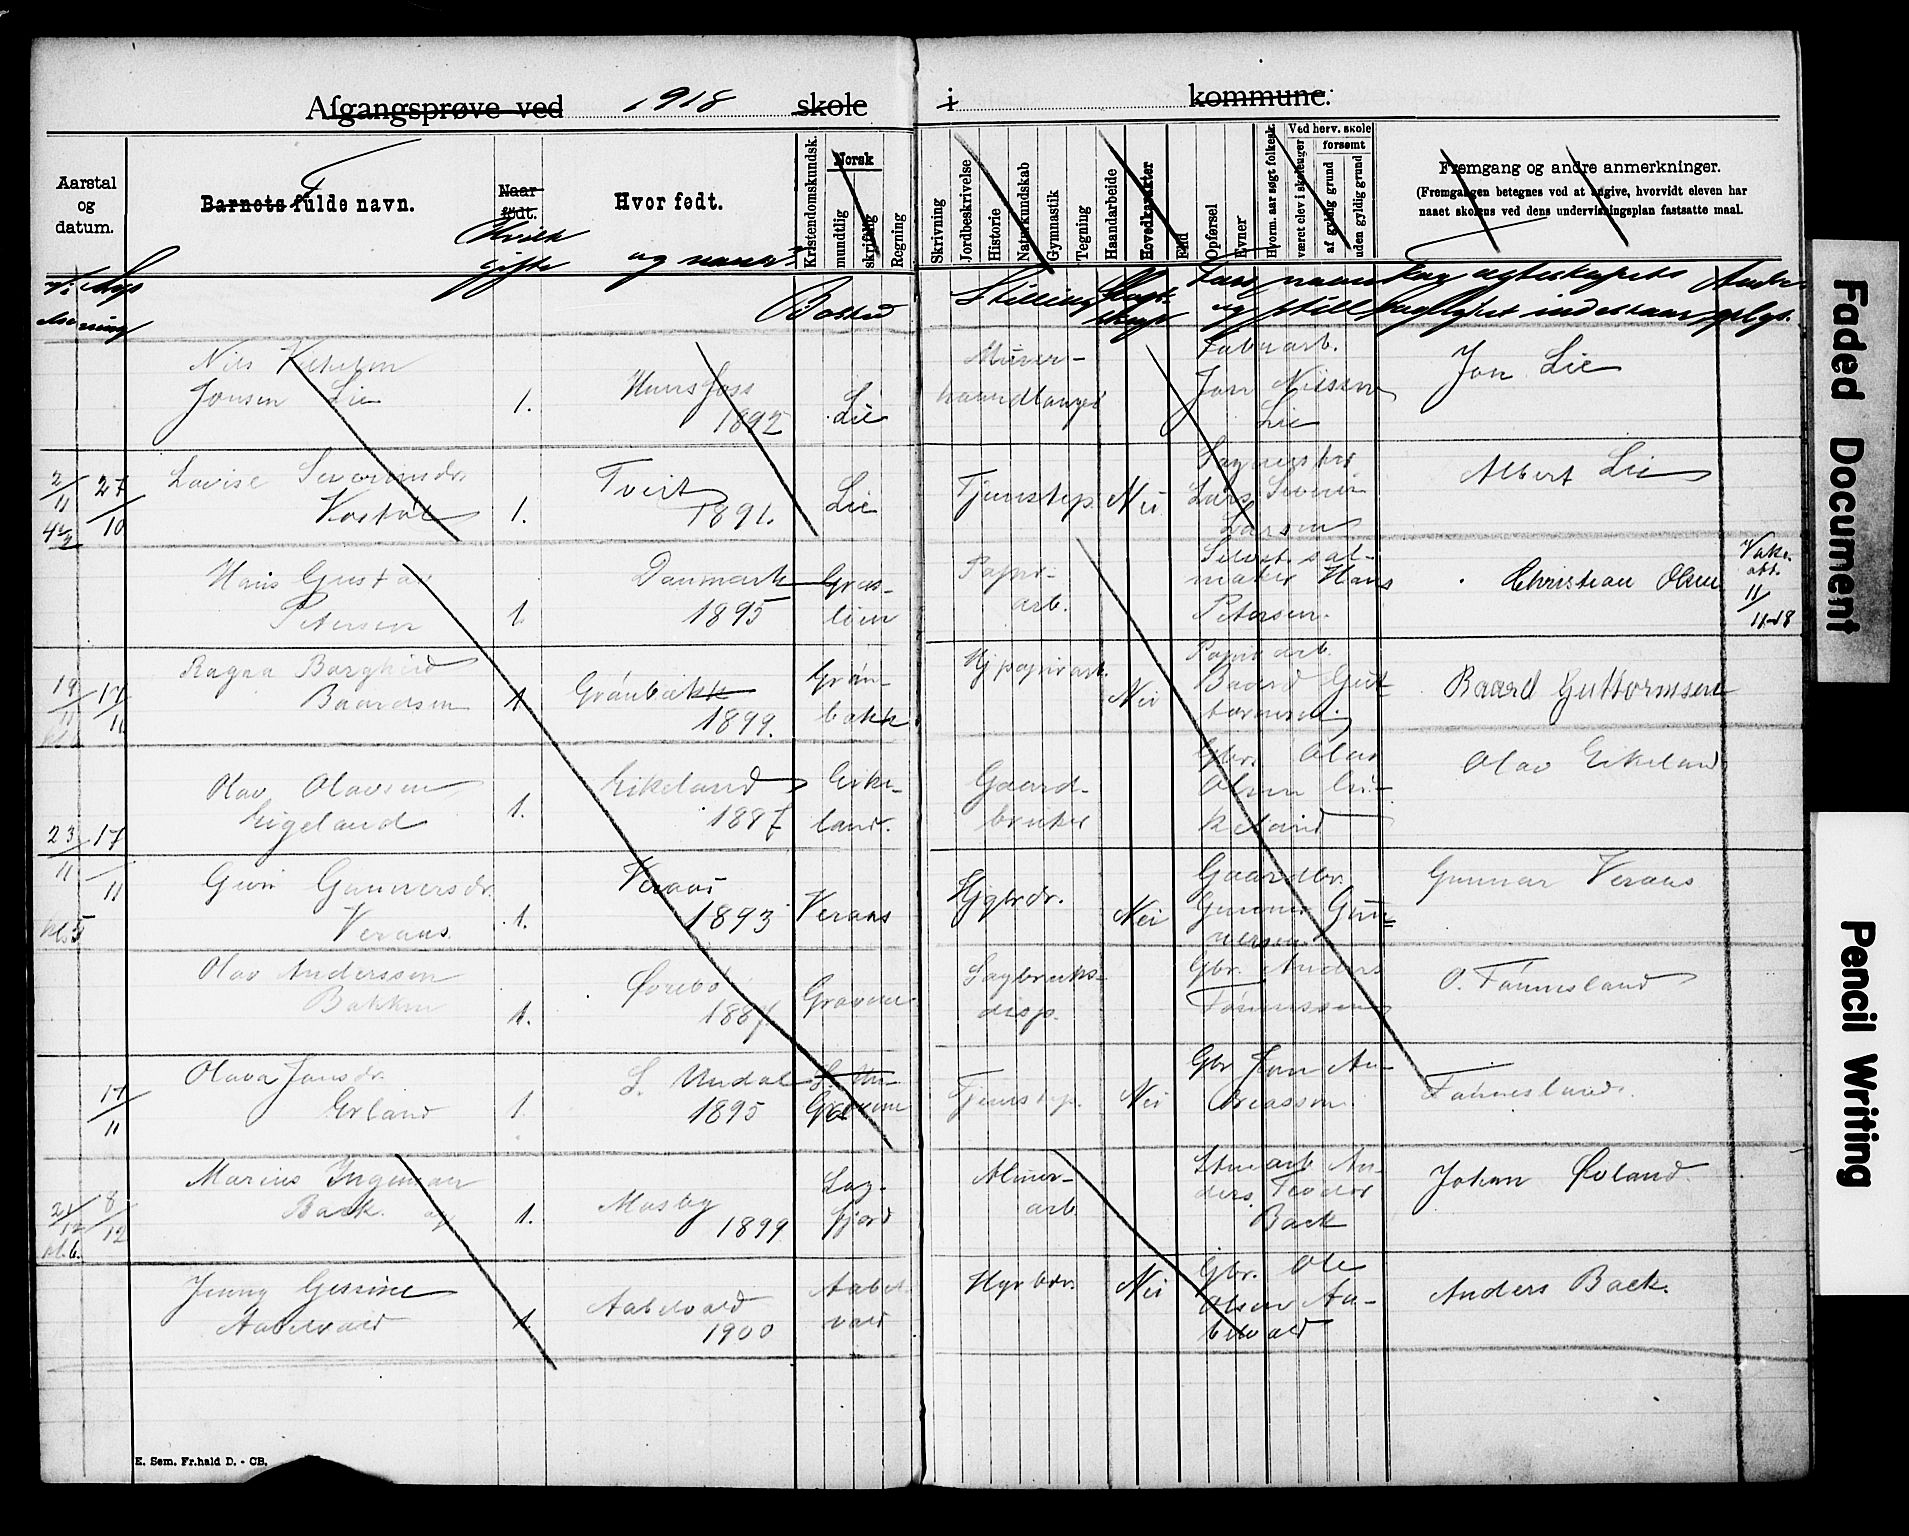 Afgangsprøve ved 1918 skole i kommune:
Aarstal
og
datum.
Barnets fulde navn.
Naar
født.
Hvor født.
Kristendomskundsk.
Norsk
mundtlig
skriftlig
Regning
Skrivning
Jordbeskrivelse
Historie
Naturkundskab
Gymnastik
Tegning
Haandarbeide
Hovedkarakter
Flid
Opførsel
Evner
Hvorm. aar søgt folkesk.
Ved herv. skole
været elev i skoleuger
forsømt
af gyldig grund
uden gyldig grund
Fremgang og andre anmerkninger.
(Fremgangen betegnes ved at angive, hvorvidt eleven har
naaet skolens ved dens undervisningsplan fastsatte maal.
gifte
og naar?
Bosted
Stilling
Fars navn
og still
For egteskapets
lovlighet indestaar
Nils
Jonsen Lie
1.
Hunsfoss
1892
Lie
Murer-
haandlanger
Fabrarb.
Jon Nilssen
Lie
Jon Lie
2/11
27/10
Lovise Severinsdr.
1.
Tveit
1891.
Lie
Tjenstep.
Nei
Lars Severin
Larsen
Albert Lie
Hans Gustav
Petersen
1.
Danmark
1895
Gras-
lien
Papir-
arb.
maker Hans
Petersen.
Christian Olsen
11/11-18
19/11
17/11
Ragna Borghild
Baardsen
1
Grønbakk
1899.
Grøn-
bakk
Hj papirarb.
Nei
Papirarb.
Baard Gut-
tormsen.
Baard Guttormsen
Olav Olavsen
Eigeland
1.
Eikeland
1887
Eike-
land.
Gaard-
bruker
Gbr. Olav
Olsen Ei-
keland
Olav Eikeland
23/11
17/11
kl. 5
Guri Gunnersdr.
Veraas
1.
Veraas
1893
Veraas
Hjgbrdr.
Nei
Gaardbr.
Gunner Gun-
nersen
Gunnar Veraas
Olav Anderssen
Bakken
1.
Øvrebø
1887.
Gravene
Sagbruks-
disp.
Gbr. Anders
Tønnessen
O. Tønnesland
17/11
Olava Jonsdr.
Erland
1.
S. Undal
1895
Gravene
Tjenstep.
Nei
Gbr Jon An-
dreassen
Tønnesland.
21/12
8/12
kl. 6.
Marius Ingeman
Back.
1.
Mosby
1899
Log-
fjord
Arb. An-
ders Teodor
Back
Johan Øvland.
Jenny Gesine
Aabelvold
1.
Aabelvold
1900
Aabel-
vold
Hgbrdr.
Nei
Gbr. Ole
Olsen Aa-
belvold
Anders Back.
E. Sem. Fr.hald D. - CB.
Faded Document
Pencil Writing